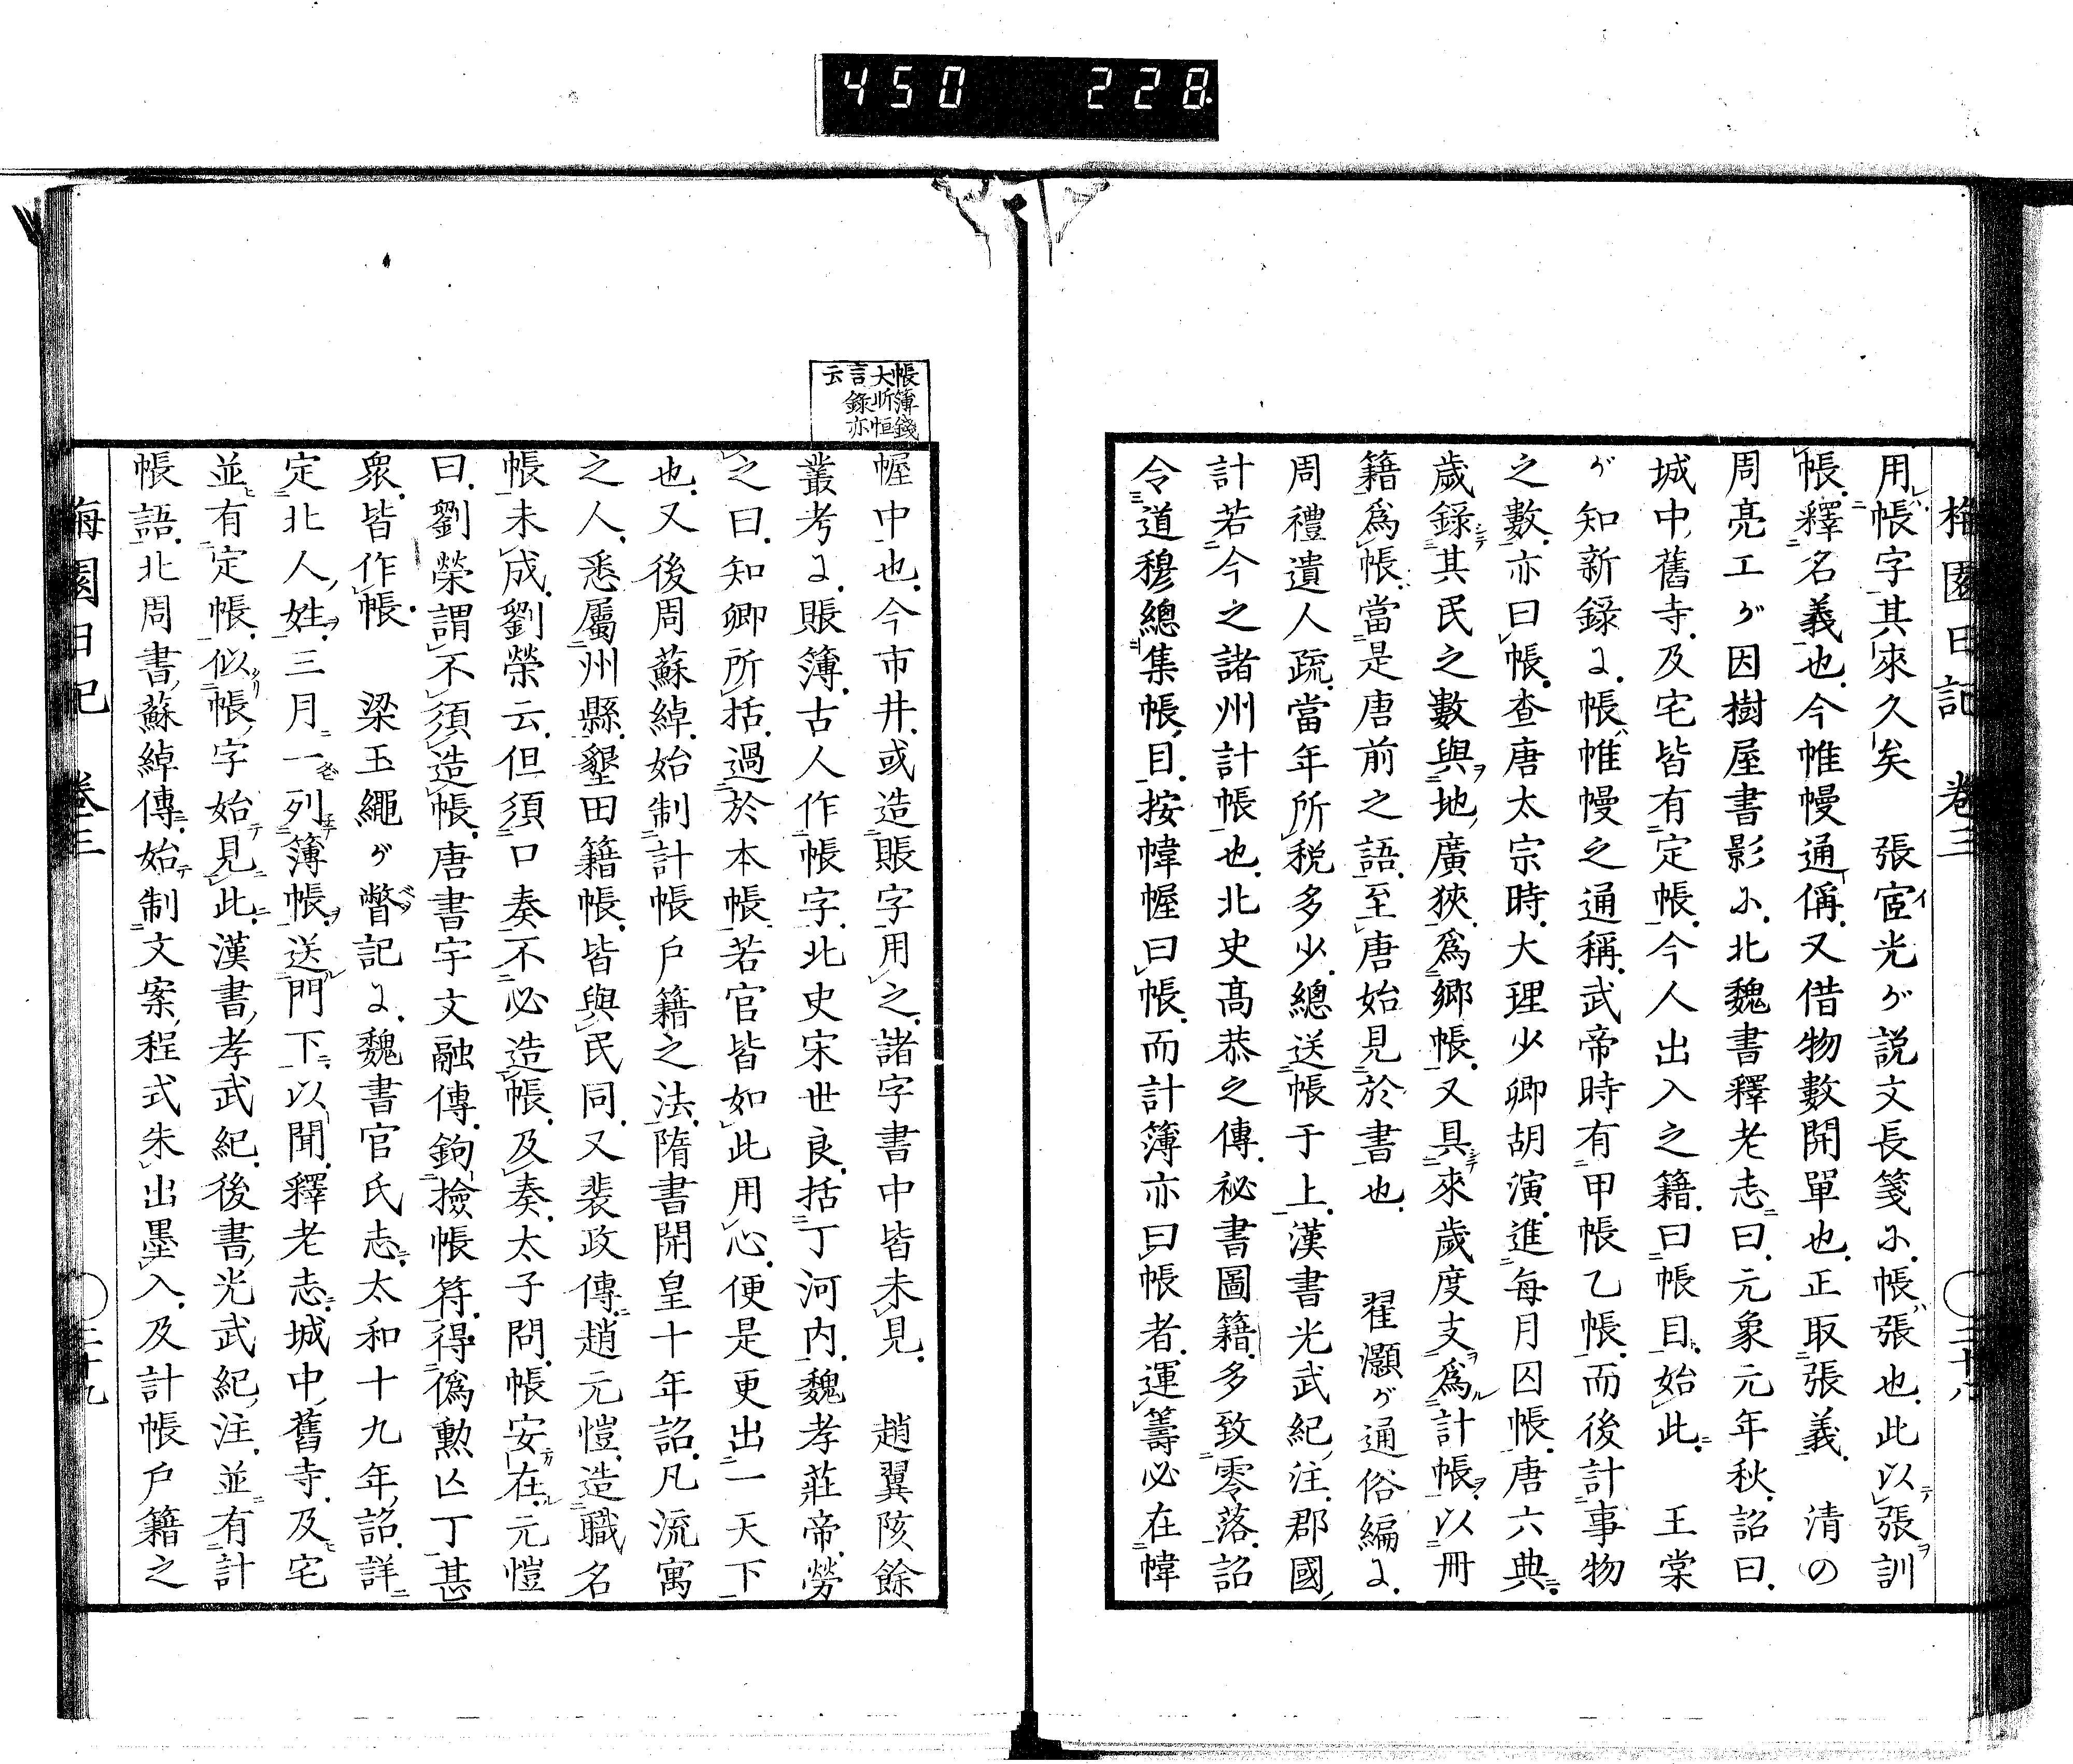 450 228
梅園日記 卷三 ○二十八
用帳字其來久矣 張宧光が説文長箋に帳張也此以張訓
帳釋名義也今帷幔通偁又借物數開單也正取張義 清の
周亮工が因樹屋書影に北魏書釋老志曰元象元年秋詔曰
城中舊寺及宅皆有定帳今人出入之籍曰帳目始此 王棠
が知新錄に帳帷幔之通稱武帝時有甲帳乙帳而後計事物
之數亦曰帳查唐太宗時大理少卿胡演進每月囚帳唐六典
歲錄其民之數與地廣狹爲鄉帳又具來歲度支爲計帳以冊
籍爲帳當是唐前之語至唐始見於書也 翟灝が通俗編に
周禮遺人疏當年所税多少總送帳于上漢書光武紀注郡國
計若今之諸州計帳也北史高恭之傳祕書圖籍多致零落詔
令道穆總集帳目按幃幄曰帳而計簿亦曰帳者運籌必在幃
帳簿錢
大昕恒
言錄亦
云
幄中也今市井或造賬字用之諸字書中皆未見 趙翼陔餘
叢考に賬簿古人作帳字北史宋世良括丁河内魏孝莊帝勞
之曰知卿所括過於本帳若官皆如此用心便是更出一天下
也又後周蘇綽始制計帳戶籍之法隋書開皇十年詔凡流寓
之人悉屬州縣墾田籍帳皆與民同又裴政傳趙元愷造職名
帳未成劉榮云但須口奏不必造帳及奏太子問帳安在元愷
曰劉榮謂不須造帳唐書宇文融傳鉤撿帳符得僞勲亾丁甚
衆皆作帳 梁玉繩が瞥記に魏書官氏志太和十九年詔詳
定北人姓三月一列簿帳送門下以聞釋老志城中舊寺及宅
並有定帳似帳字始見此漢書孝武紀後書光武紀注並有計
帳語北周書蘇綽傳始制文案程式朱出墨入及計帳戶籍之
梅園日記 卷三 ○二十九